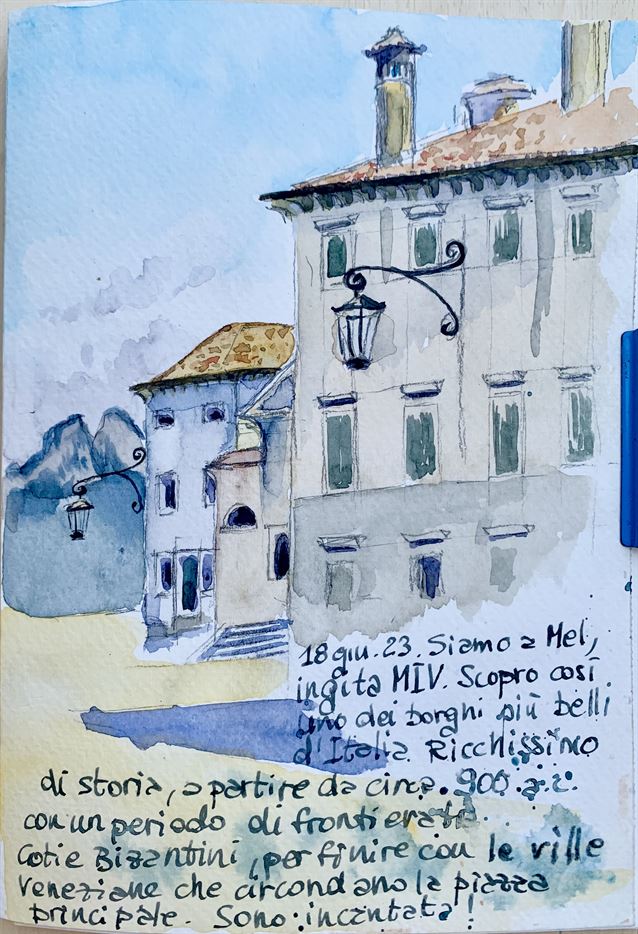 18 giu. 23. Siamo a Mel,
in gita MIV. Scopro così
uno dei borghi più belli
d'Italia. Ricchissimo
di storia, a partire da circa. 900 a.c.
con un periodo di frontiera tra
Goti e Bizantini, per finire con le ville
Veneziane che circondano la piazza
principale. Sono incantata!